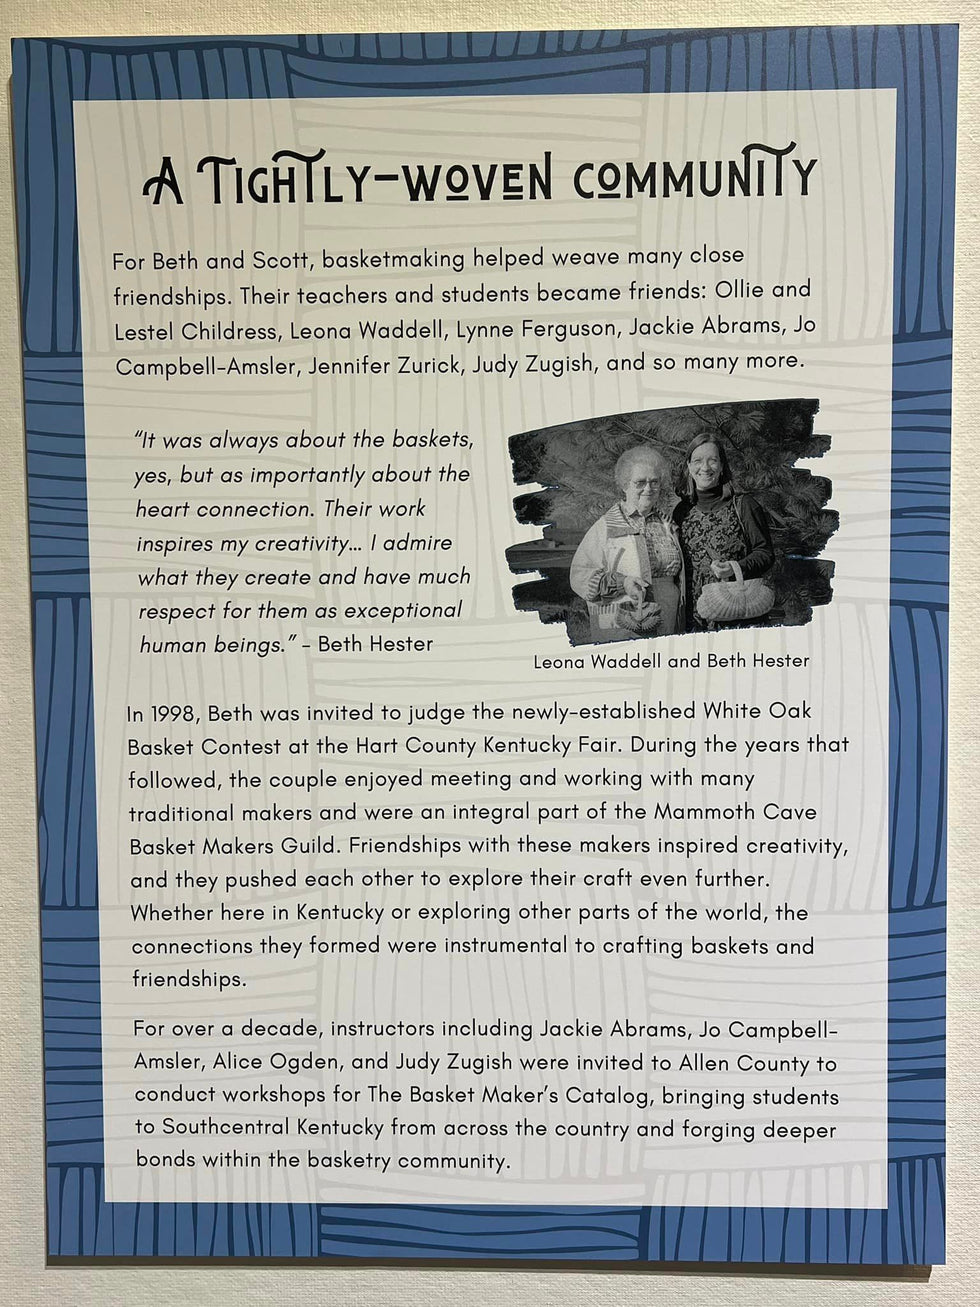 A TIGHTLY-WOVEN COMMUNITY
For Beth and Scott, basketmaking helped weave many close
friendships. Their teachers and students became friends: Ollie and
Lestel Childress, Leona Waddell, Lynne Ferguson, Jackie Abrams, Jo
Campbell-Amsler, Jennifer Zurick, Judy Zugish, and so many more.
“It was always about the baskets,
yes, but as importantly about the
heart connection. Their work
inspires my creativity... I admire
what they create and have much
respect for them as exceptional
human beings.” - Beth Hester
Leona Waddell and Beth Hester
In 1998, Beth was invited to judge the newly-established White Oak
Basket Contest at the Hart County Kentucky Fair. During the years that
followed, the couple enjoyed meeting and working with many
traditional makers and were an integral part of the Mammoth Cave
Basket Makers Guild. Friendships with these makers inspired creativity,
and they pushed each other to explore their craft even further.
Whether here in Kentucky or exploring other parts of the world, the
connections they formed were instrumental to crafting baskets and
friendships.
For over a decade, instructors including Jackie Abrams, Jo Campbell-
Amsler, Alice Ogden, and Judy Zugish were invited to Allen County to
conduct workshops for The Basket Maker’s Catalog, bringing students
to Southcentral Kentucky from across the country and forging deeper
bonds within the basketry community.